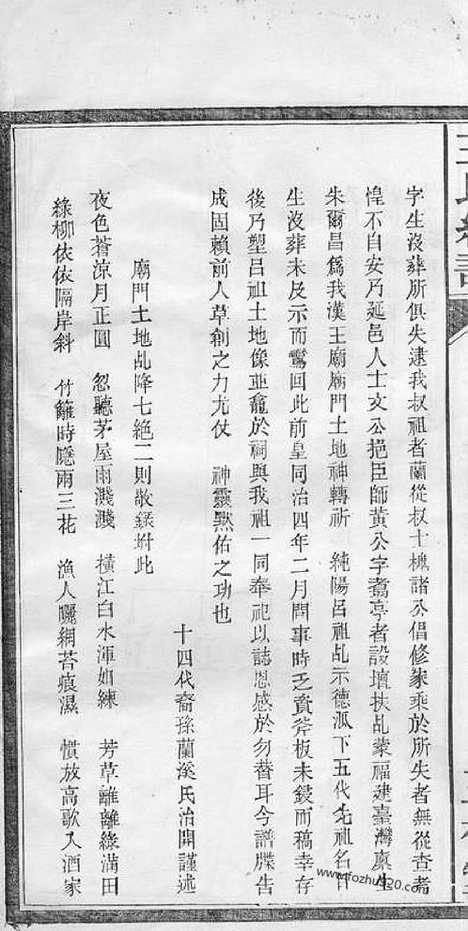 字生沒葬所俱失逮我叔祖耆蘭從叔士槐諸公倡修家乘於所失者無從查考
惶不自安乃延邑人士文公挹臣師黃公字翥亭者設壇扶乩蒙福建臺灣真生
朱爾昌為我漢王廟廟門土地神轉祈 純陽呂祖乩示德派下五代先祖名目
生沒葬未及示而鸞回此前皇同治四年二月間事時乏資斧板未鋟而稿幸存
後乃塑呂祖土地像並龕於祠與我祖一同奉祀以誌恩感於勿替耳今譜牒告
成固賴前人草創之力尤仗 神靈默佑之功也
十四代裔孫蘭溪氏治開謹述
廟門土地乩降七絕二則敬錄坿此
夜色蒼涼月正圓 忽聽茅屋雨濺濺 橫江白水渾如練 芳草離離綠滿田
綠柳依依隔岸斜 竹籬時隱兩三花 漁人曬網苔痕濕 慣放高歌入酒家
www.fozhu920.com